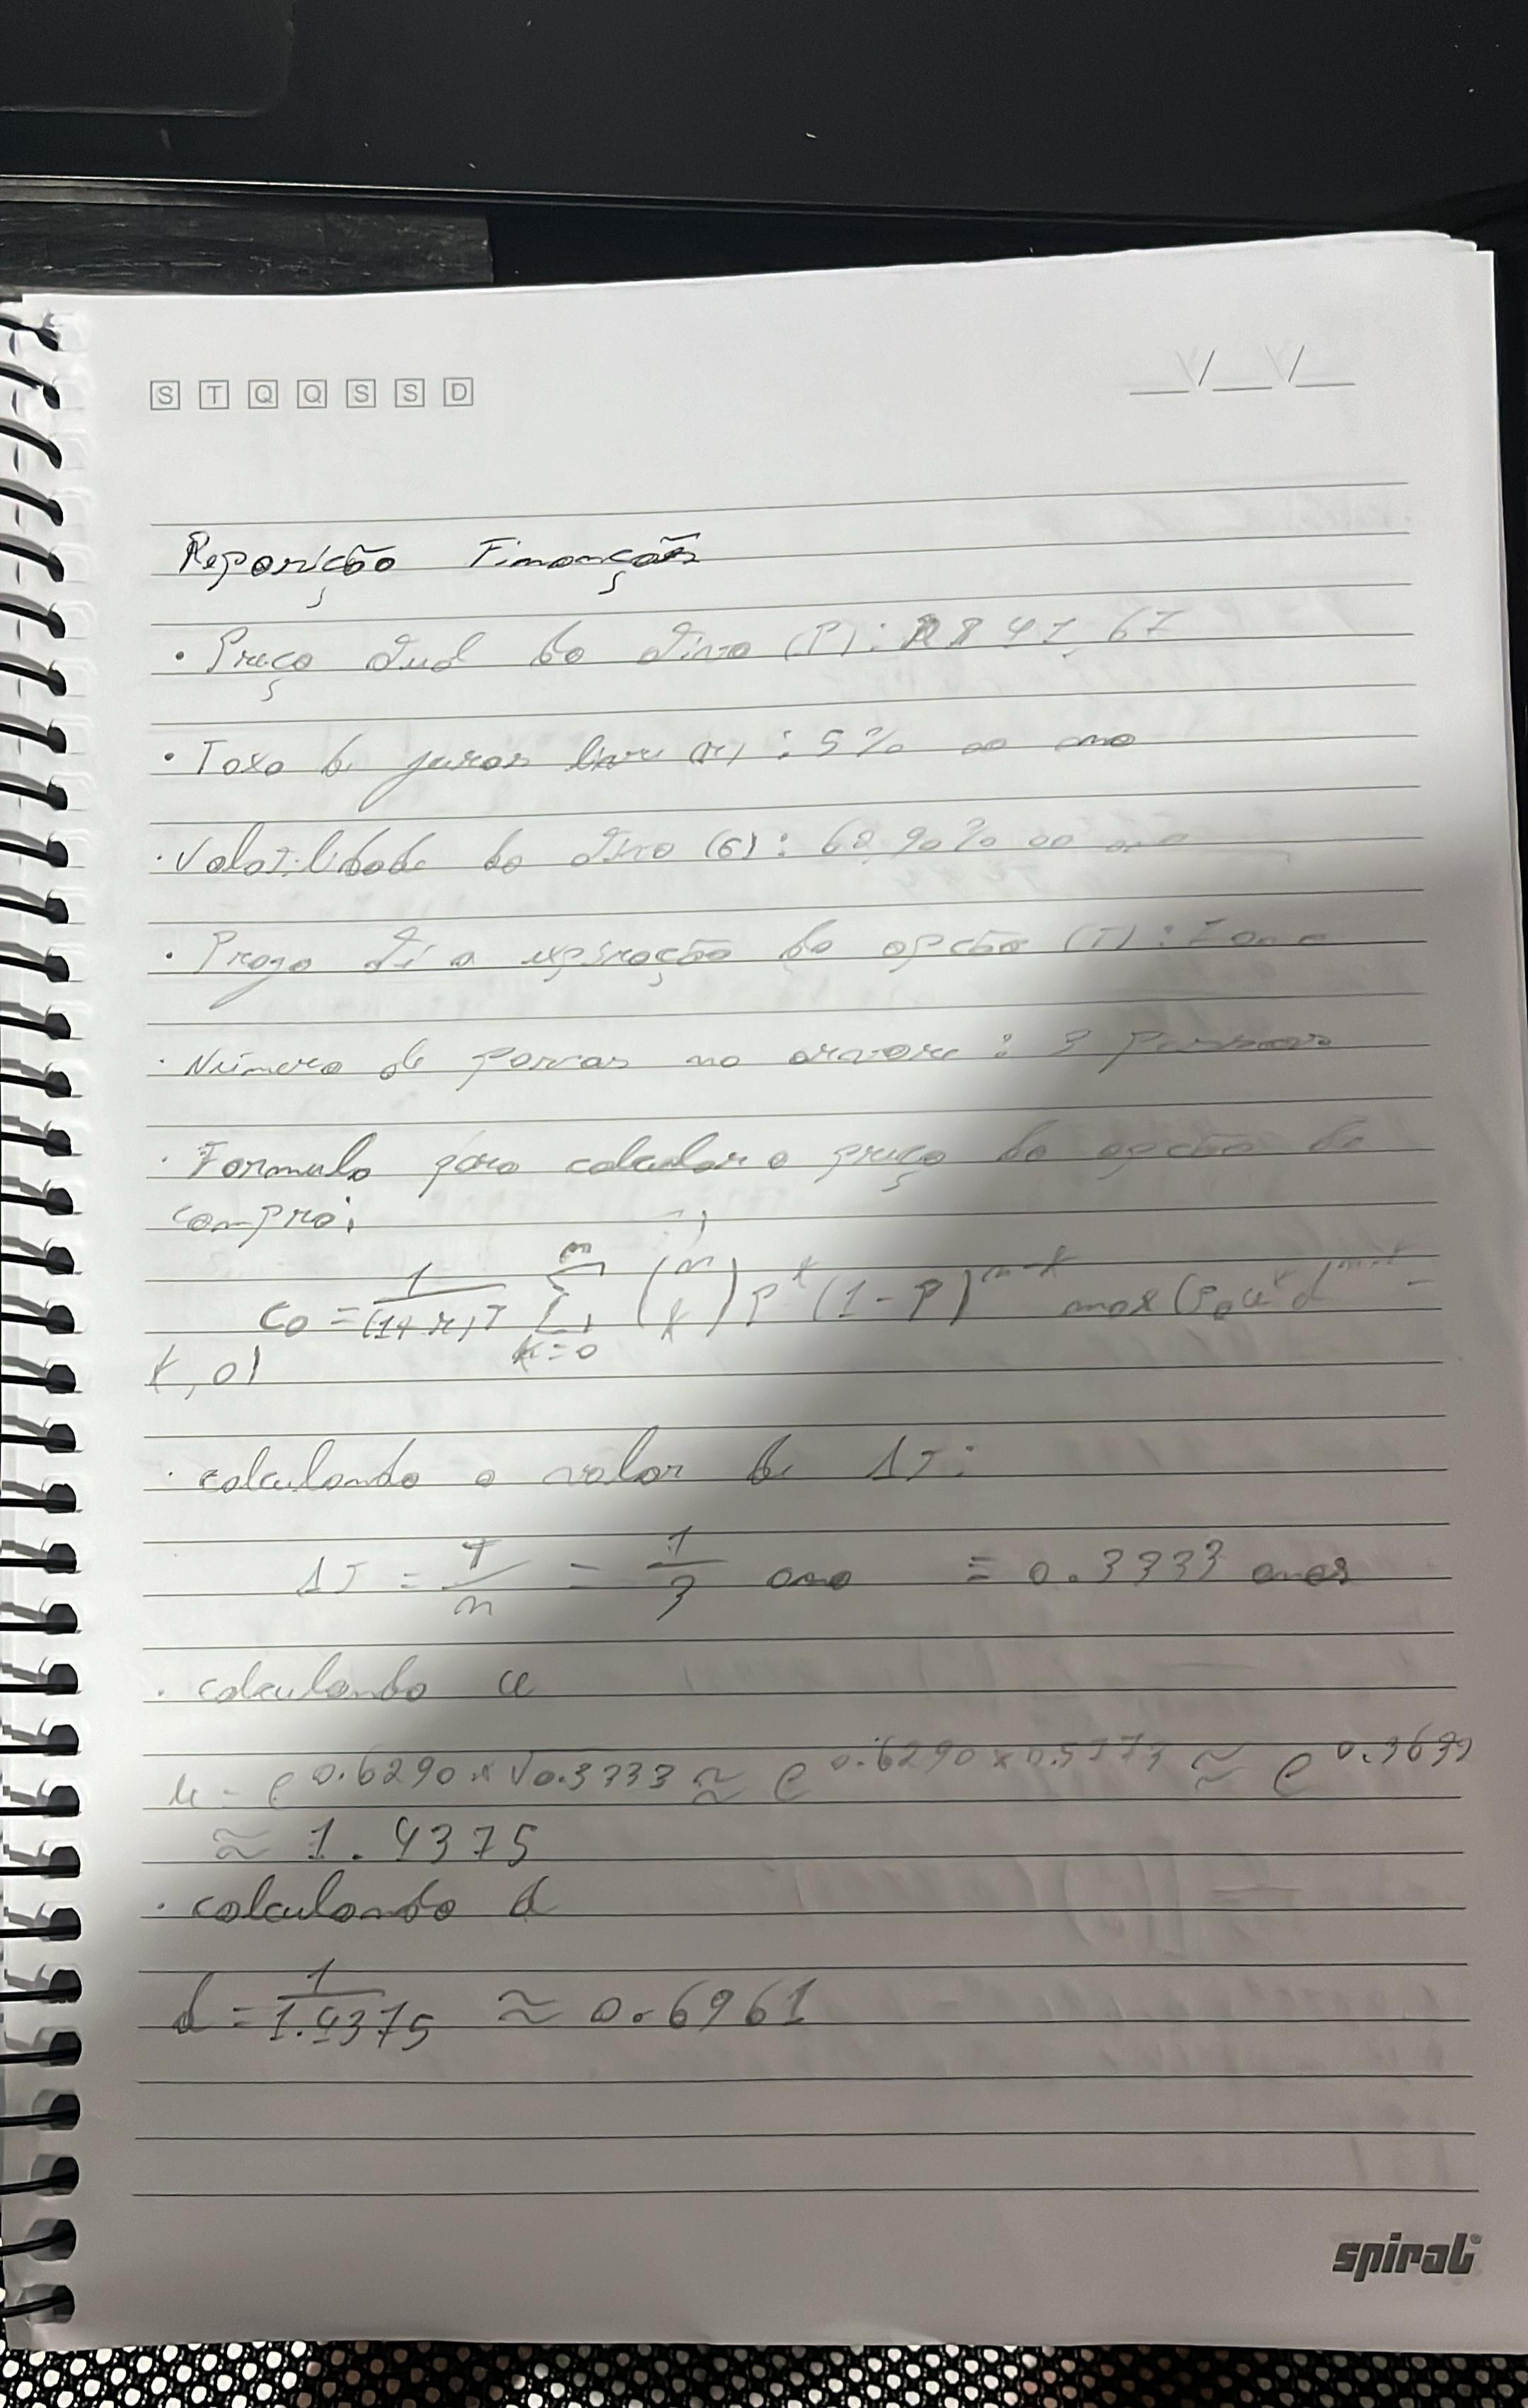 S T Q Q S S D
__/__/__
Reposição Finanções
• Preço Atual do Ativo (P): R$ 41,67
• Taxa de juros livre (r) : 5% ao ano
• Volatilidade do Ativo (σ) : 62,90% ao ano
• Prazo até a expiração da opção (T) : 1 ano
• Número de passos na árvore : 3 passos
• Formula para calcular o preço da opção de
compra:
C0 = 1/(1+r)^T Σ_{k=0}^{n} (n k) P^k (1-P)^{n-k} max (P0 u^k d^{n-k} -
k, 0)
• calculando o valor de ΔT:
ΔT = T/n = 1/3 ano = 0.3333 anos
• calculando u
u = e^{0.6290 x √0.3333} ≈ e^{0.6290 x 0.5773} ≈ e^{0.3630}
≈ 1.4375
• calculando d
d = 1/1.4375 ≈ 0.6961
spiral